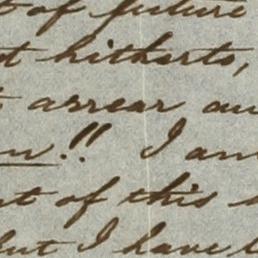 of future
hitherto,
arrear
!! I am
of this
but I have